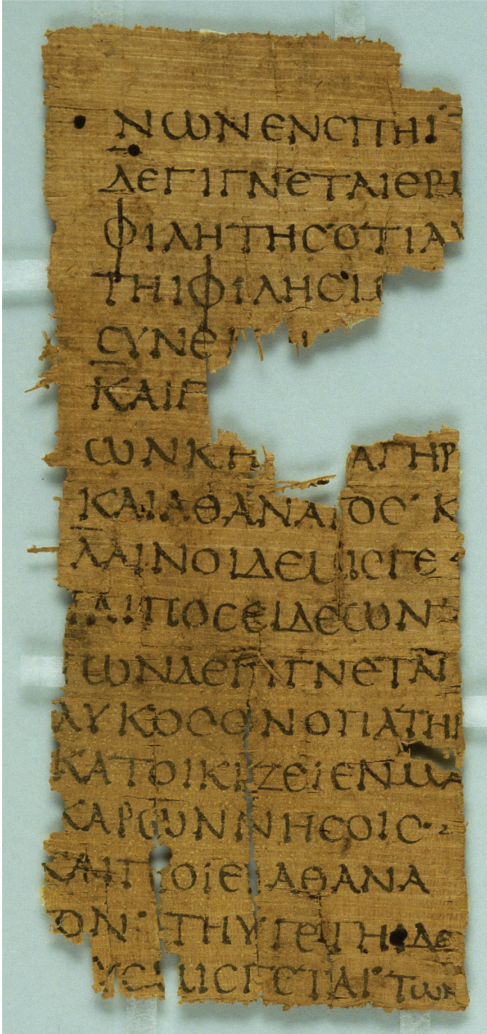 ΝΩΝΕΝCΠΗΙ
ΔΕΓΙΓΝΕΤΑΙΕΡΜ
ΦΙΛΗΤΗCΟΤΙΑΥ
ΤΗΙΦΙΛΗCΙ
CΥΝΕ
ΚΑΙΓ
ΩΝΚΗ ΑΓΗΡ
ΚΑΙΑΘΑΝΑΤΟC· Κ
ΛΑΙΝΟΙΔΕΜΙCΓΕ
ΤΑΙΠΟCΕΙΔΕΩΝ·
ΤΩΝΔΕΓΙΓΝΕΤΑΙ
ΛΥΚΟCΟΝΟΠΑΤΗΡ
ΚΑΤΟΙΚΙΖΕΙΕΝΜΑ
ΚΑΡΩΝΝΗCΟΙC·
ΚΑΙΠΟΙΕΙΑΘΑΝΑ
ΤΟΝ· ΤΗΥΓΕΤΗΙΔΕ
ΖΕΥCΜΙCΓΕΤΑΙ· ΤΩΝ